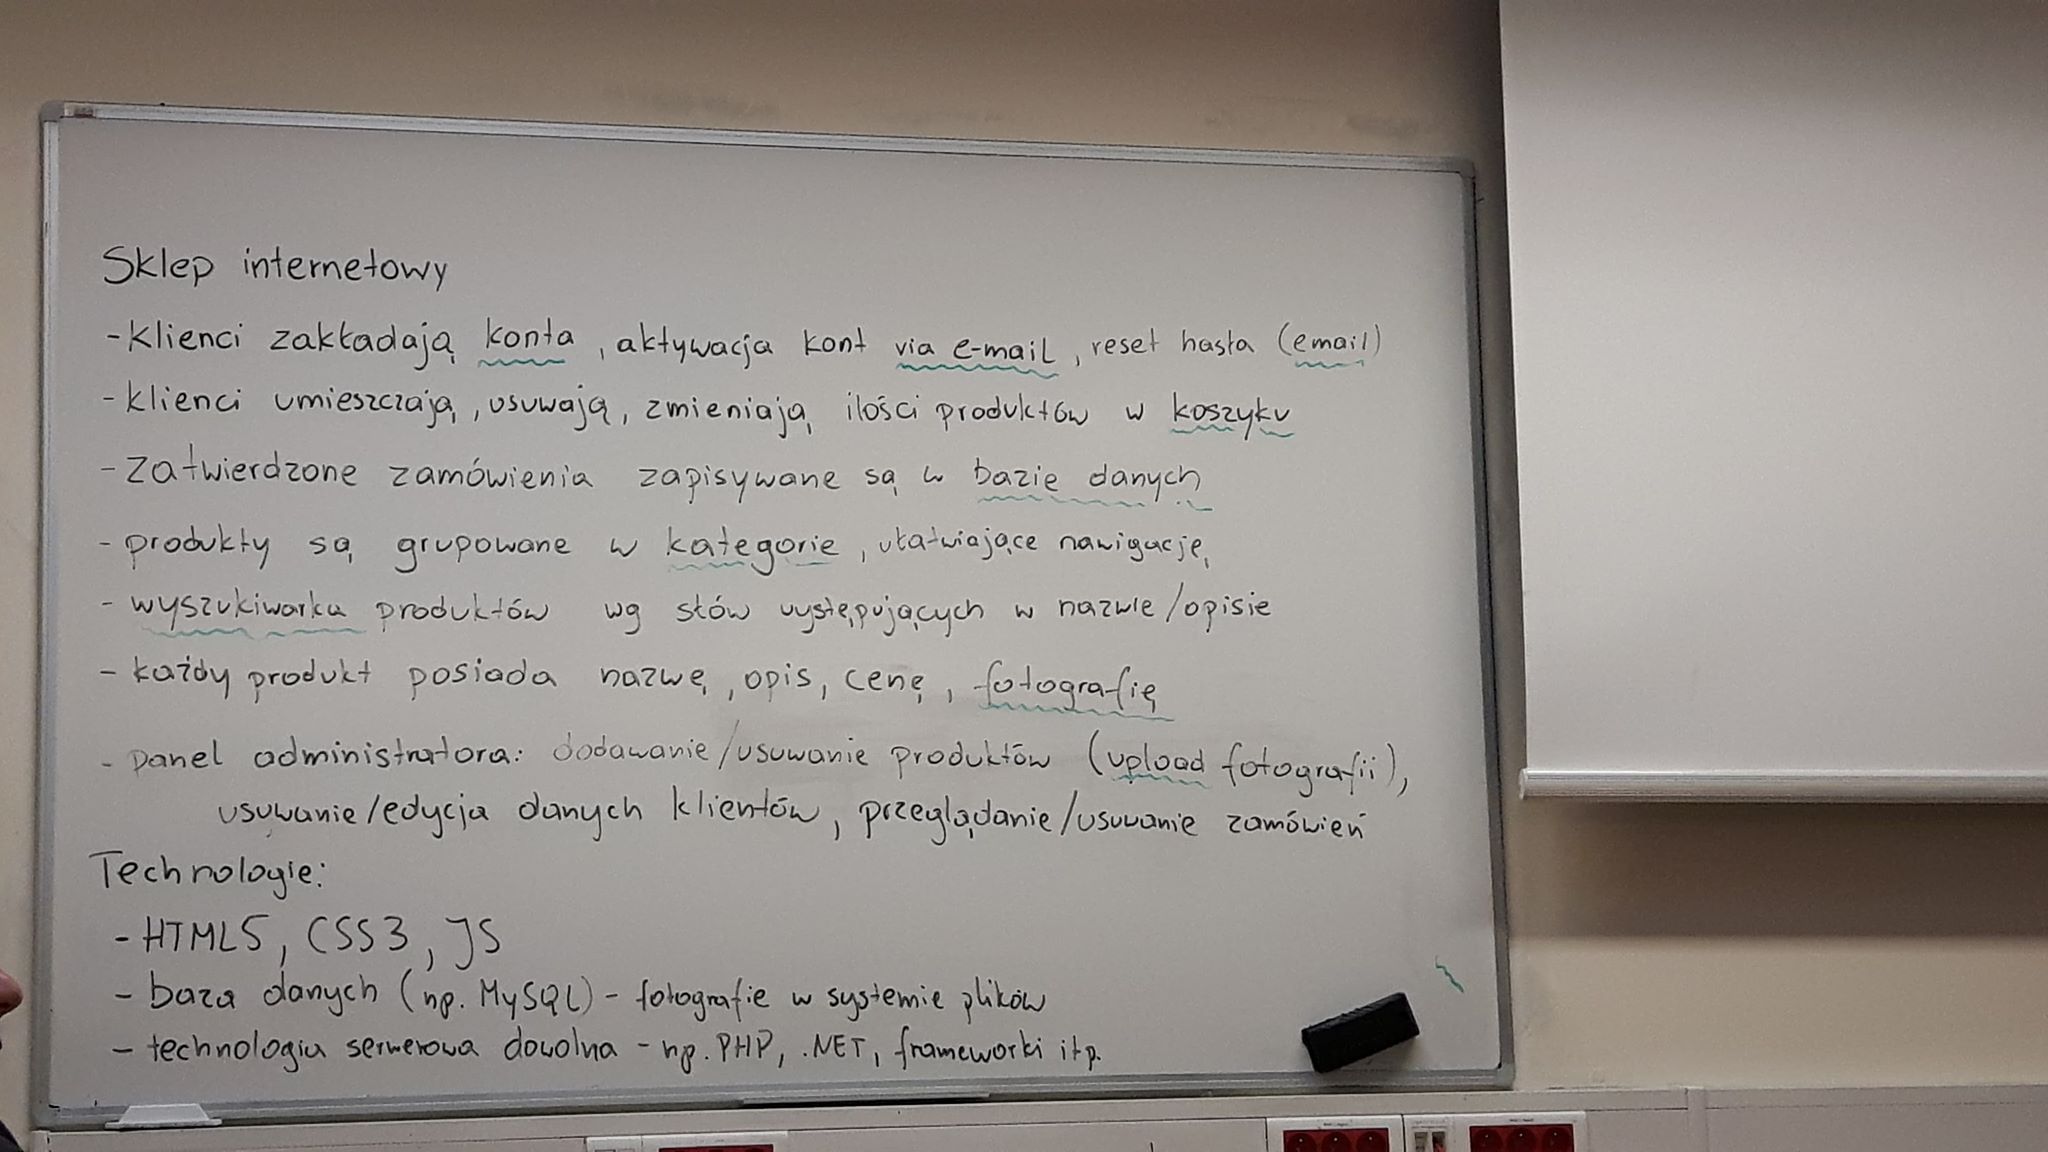 Sklep internetowy
- klienci zakładają konta, aktywacja kont via e-mail, reset hasła (email)
- klienci umieszczają, usuwają, zmieniają ilości produktów w koszyku
- zatwierdzone zamówienia zapisywane są w bazie danych
- produkty są grupowane w kategorie, ułatwiające nawigację
- wyszukiwarka produktów wg słów występujących w nazwie/opisie
- każdy produkt posiada nazwę, opis, cenę, fotografię
- panel administratora: dodawanie/usuwanie produktów (upload fotografii),
usuwanie/edycja danych klientów, przeglądanie/usuwanie zamówień
Technologie:
- HTML5, CSS3, JS
- baza danych (np. MySQL) - fotografie w systemie plików
- technologia serwerowa dowolna - np. PHP, .NET, frameworki itp.